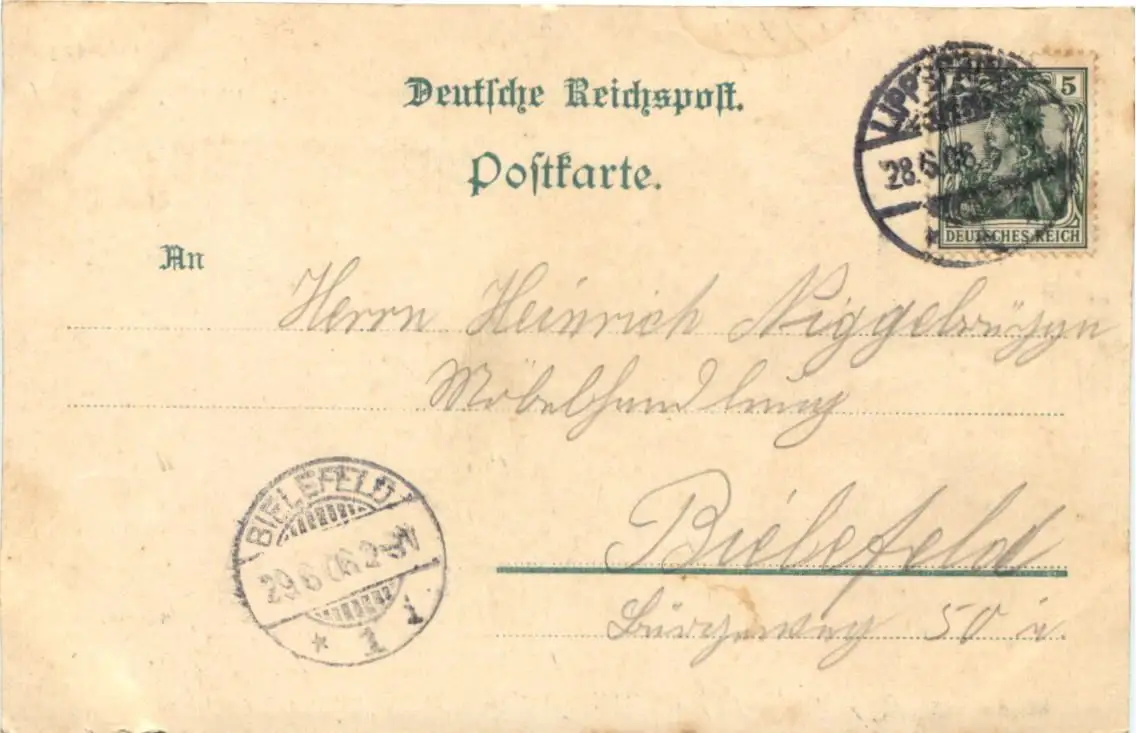 Deutsche Reichspost.
Postkarte.
5
LIPPSPRINGE
28.6.06
DEUTSCHES REICH
An
Herrn Heinrich
Möbelhandlung
BIELEFELD
29.6.06.2-3N
* 1 i
Bielefeld
50 i.